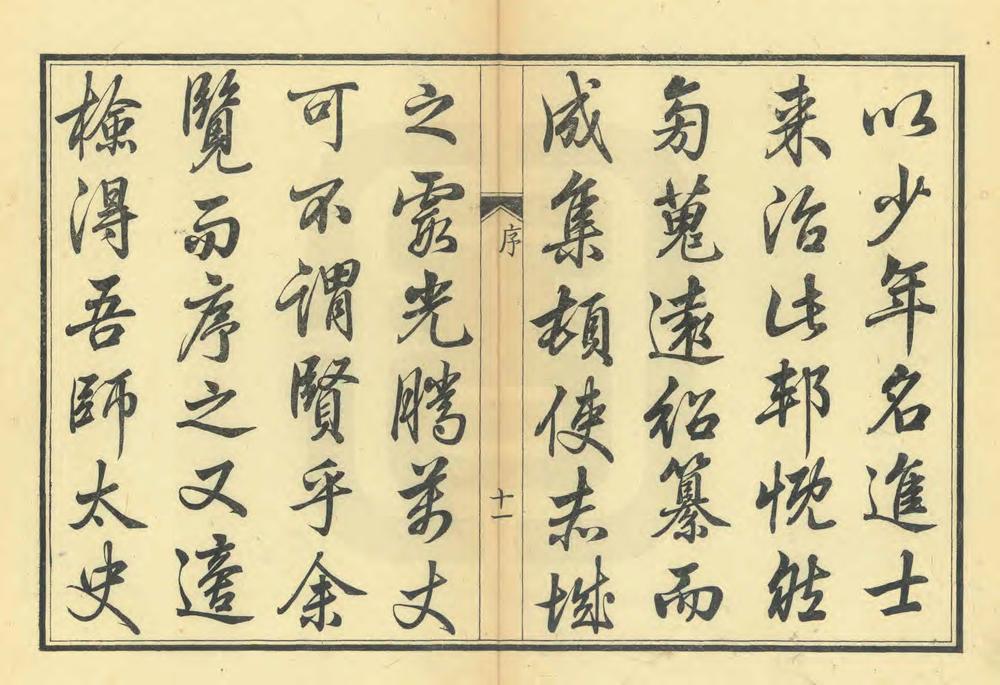 以少年名進士
来治此邦慨然
旁蒐遠紹纂而
成集頓使赤城
序
十一
之霞光騰萬丈
可不謂賢乎余
覽而序之又適
檢得吾師太史